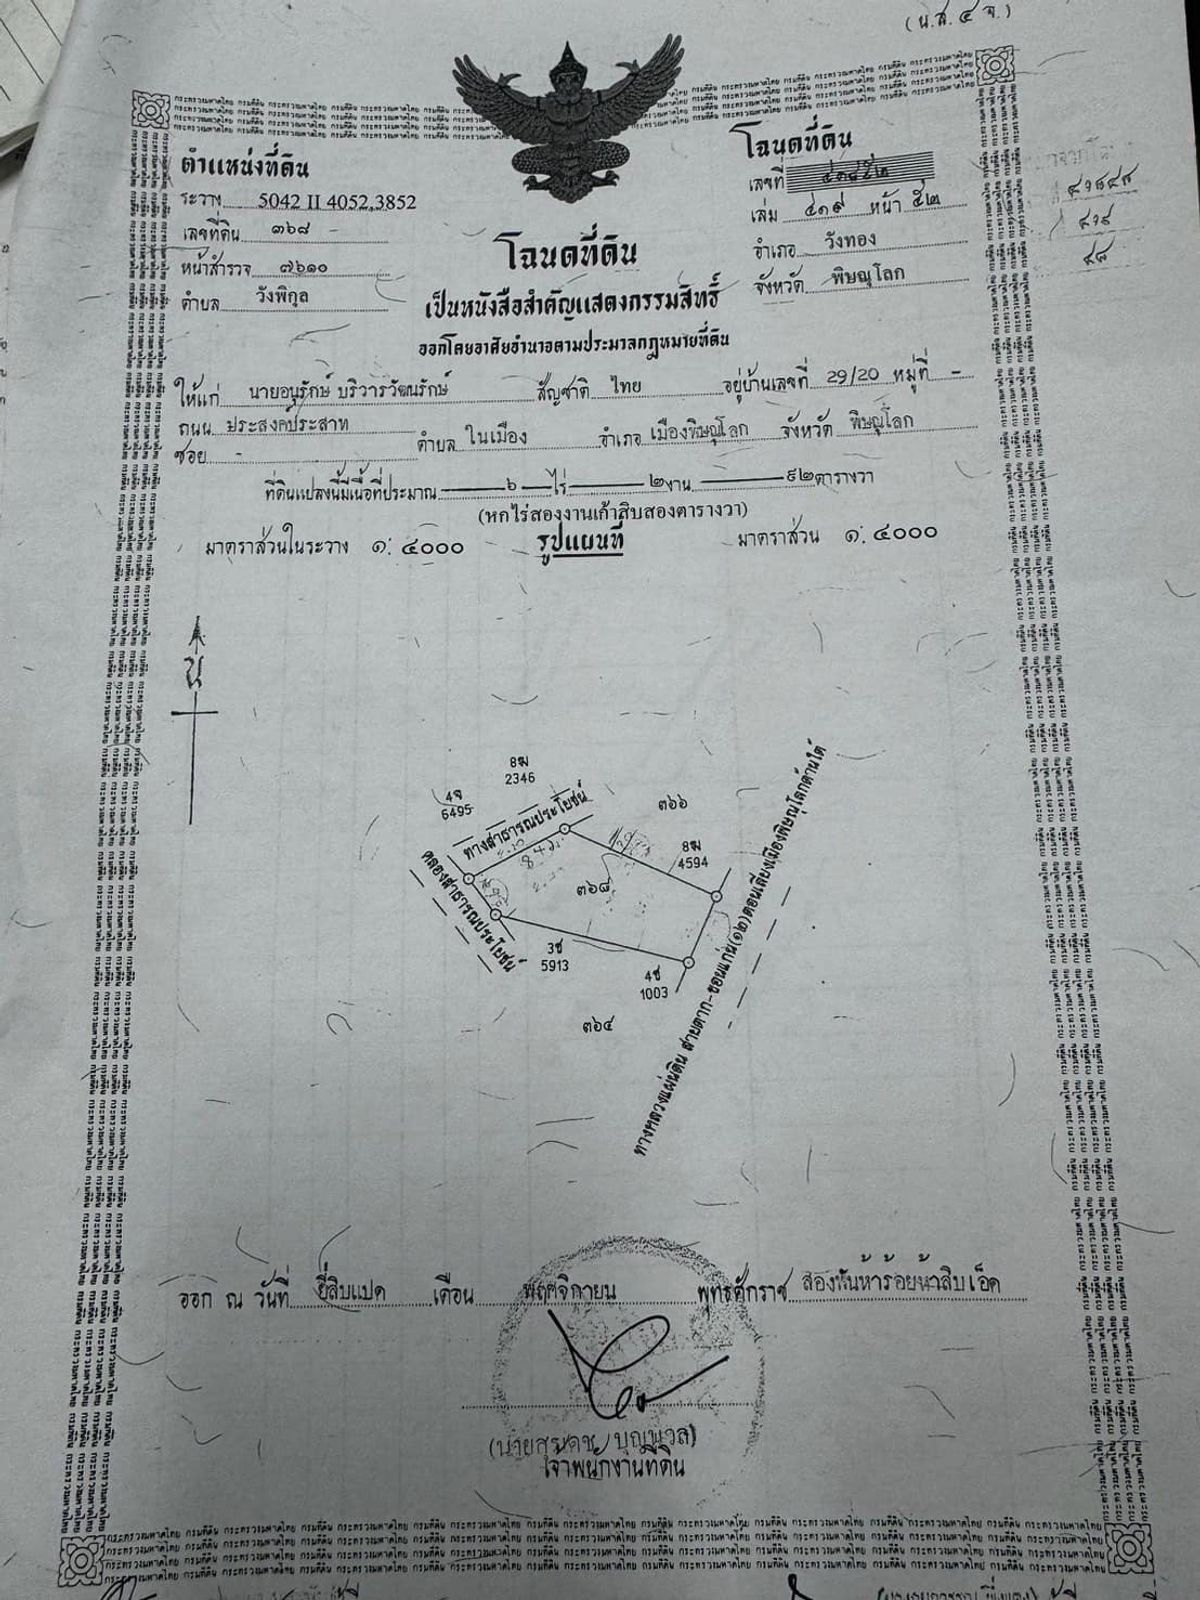 (น.ส. ๔ จ.)
ตำแหน่งที่ดิน
ระวาง 5042 II 4052,3852
เลขที่ดิน ๓๖๘
หน้าสำรวจ ๗๖๑๐
ตำบล วังพิกุล
โฉนดที่ดิน
เลขที่
เล่ม ๔๑๙ หน้า ๕๒
อำเภอ วังทอง
จังหวัด พิษณุโลก
๔๑๙
๔๘
โฉนดที่ดิน
เป็นหนังสือสำคัญแสดงกรรมสิทธิ์
ออกโดยอาศัยอำนาจตามประมวลกฎหมายที่ดิน
ให้แก่ นายอนุรักษ์ บริวารวัฒนรักษ์ สัญชาติ ไทย อยู่บ้านเลขที่ 29/20 หมู่ที่ -
ถนน ประสงค์ประสาท ตำบล ในเมือง อำเภอ เมืองพิษณุโลก จังหวัด พิษณุโลก
ซอย -
ที่ดินแปลงนี้มีเนื้อที่ประมาณ ๖ ไร่ ๒ งาน ๙๒ ตารางวา
(หกไร่สองงานเก้าสิบสองตารางวา)
มาตราส่วนในระวาง ๑: ๔๐๐๐ รูปแผนที่ มาตราส่วน ๑: ๔๐๐๐
น
8ฆ
2346
4จ
6495
ทางสาธารณประโยชน์
๓๖๖
8ฆ
4594
๓๖๘
คลองสาธารณประโยชน์
3ช
5913
4ช
1003
๓๖๔
ทางหลวงแผ่นดิน สายตาก-ขอนแก่น(๑๒)ตอนเลี่ยงเมืองพิษณุโลกด้านใต้
ออก ณ วันที่ ยี่สิบแปด เดือน พฤศจิกายน พุทธศักราช สองพันห้าร้อยห้าสิบเอ็ด
(นายสุมิตช บุญนวล)
เจ้าพนักงานที่ดิน
กระทรวงมหาดไทย กรมที่ดิน